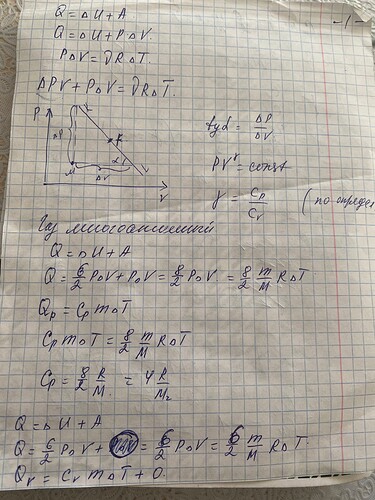 -1-
Q = ΔU + A
Q = ΔU + PΔV.
PΔV = νRΔT.
ΔPV + PΔV = νRΔT.
P
ΔP
K
α
M
ΔV
V
tgα = ΔP/ΔV
PV^γ = const
γ = Cp/Cv (по опред
Газ многоатомный
Q = ΔU + A
Q = 6/2 PΔV + PΔV = 8/2 PΔV = 8/2 m/M RΔT
Qp = Cp mΔT
Cp mΔT = 8/2 m/M RΔT
Cp = 8/2 R/M = 4 R/M
Q = ΔU + A
Q = 6/2 PΔV + = 6/2 PΔV = 6/2 m/M RΔT.
Qv = Cv mΔT + 0.